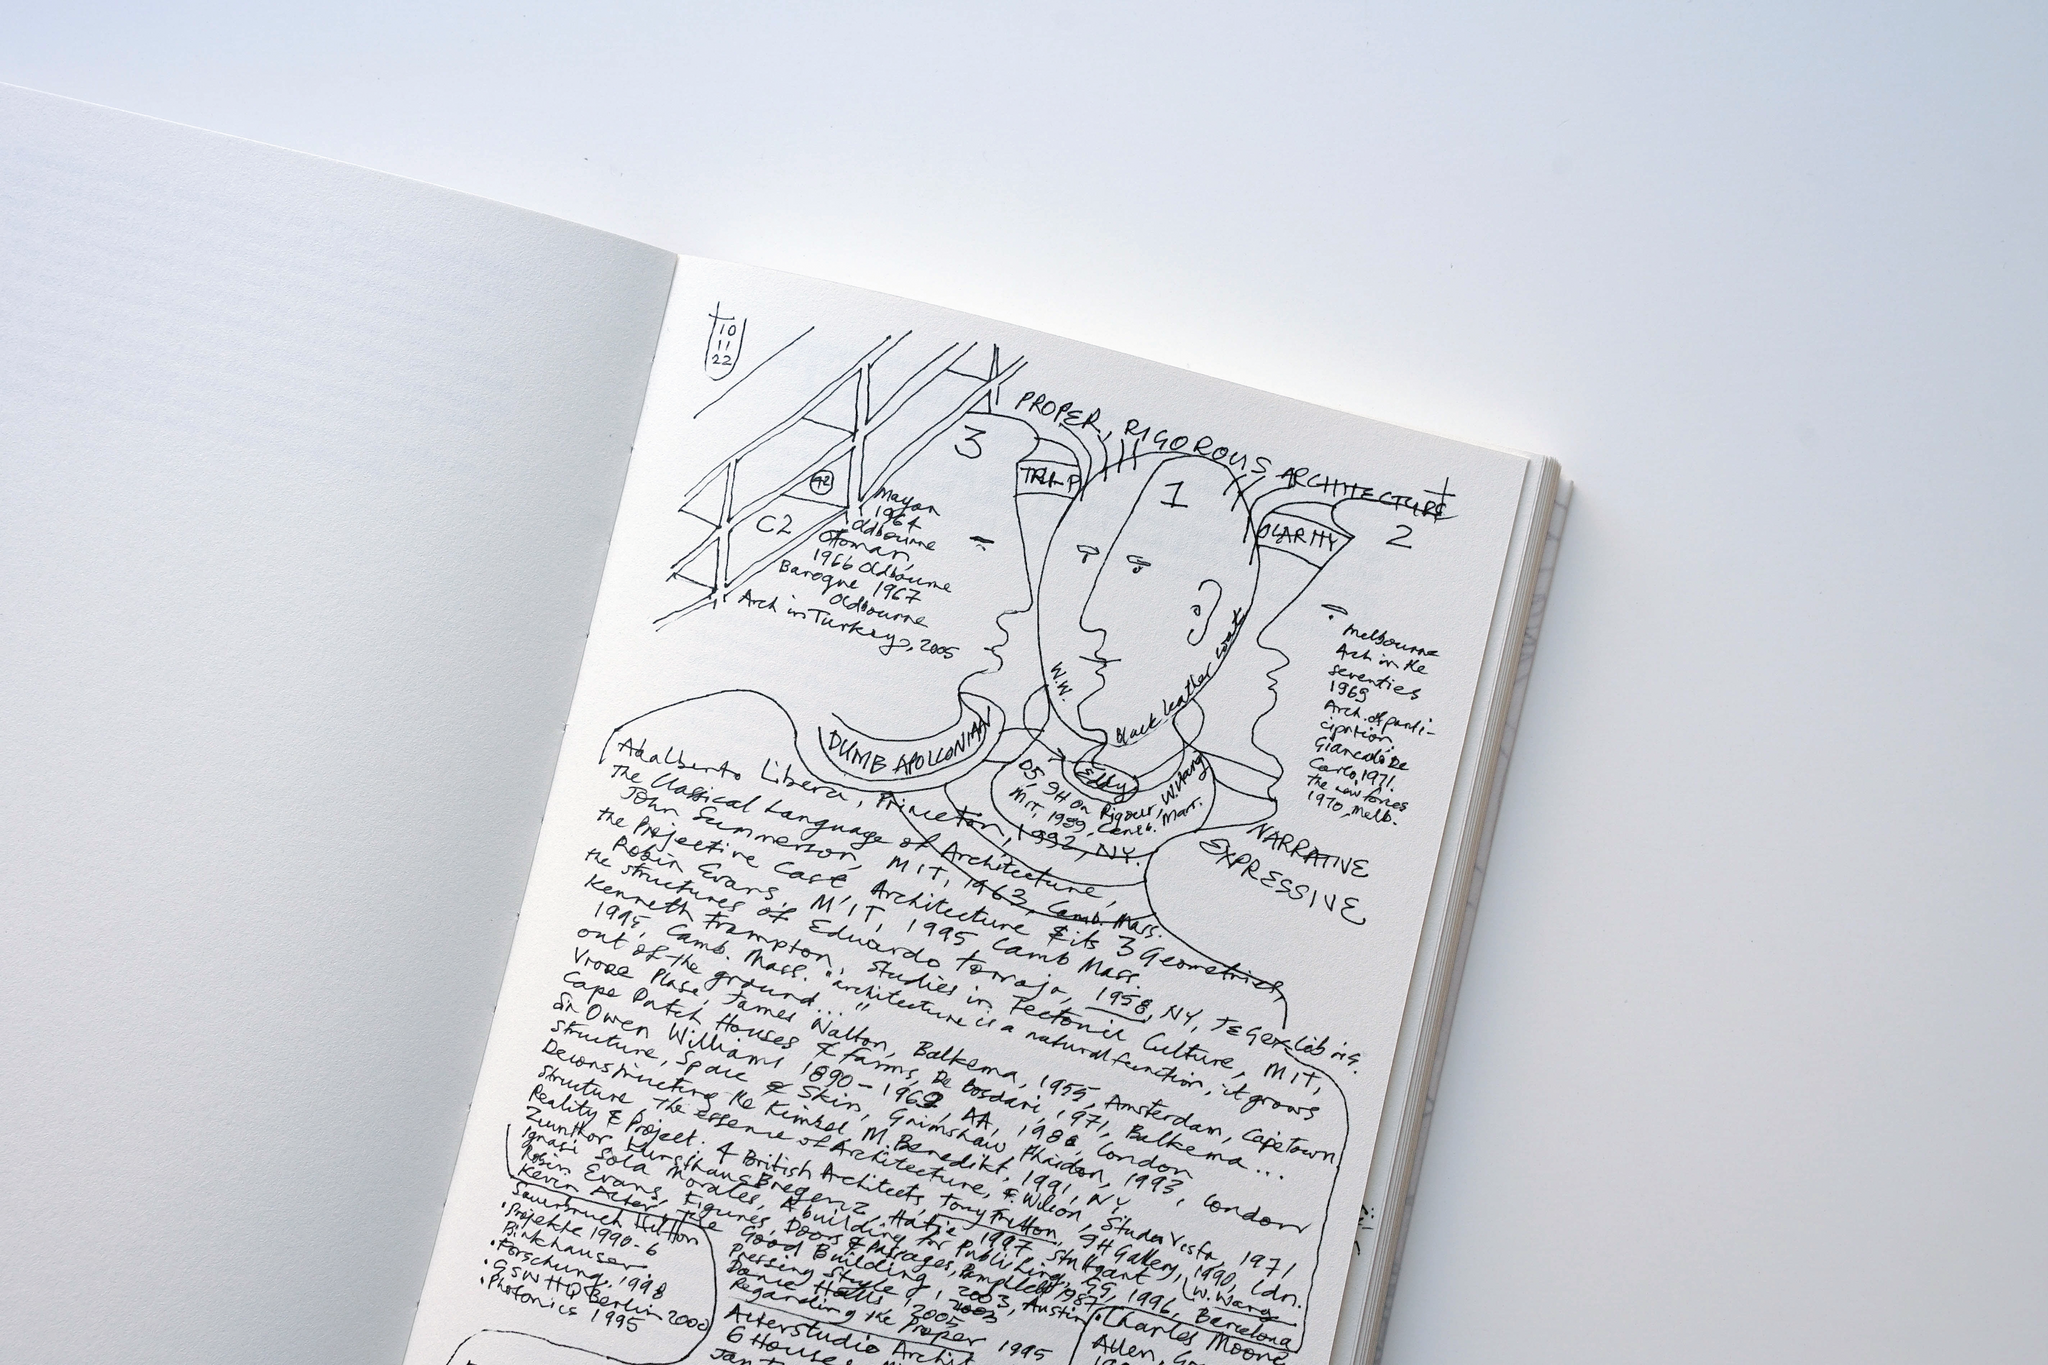 10
11
22
PROPER, RIGOROUS ARCHITECTURE
3
1
2
C2
Mayan
1964
Oldbourne
Ottoman,
1966 Oldbourne
Baroque 1967
Oldbourne
Arch in Turkey, 2005
W.W.
Black leather coat
Melbourne
Arch in the
seventies
1969
Arch. of parti-
cipation,
Giancarlo De
Carlo, 1971.
the new forces
1970, Melb.
DUMB APOLLONIAN
Eddy
9H On Rigour, W.Wang
MIT, 1989, Camb. Mass.
NARRATIVE
EXPRESSIVE
Adalberto Libera, Princeton, 1992, NY.
The Classical Language of Architecture,
John Summerson, MIT, 1963, Camb. Mass.
the Projective Cast, Architecture & its 3 Geometries,
Robin Evans, MIT, 1995 Camb Mass.
the structures of Eduardo Torroja, 1958, NY,
Kenneth Frampton, Studies in Tectonic Culture, MIT,
1995, Camb. Mass. "architecture is a natural function, it grows
out of the ground..."
James Walton, Balkema, 1955, Amsterdam, Capetown
Cape Dutch Houses & Farms, De Bosdari, 1971, Balkema...
Sir Owen Williams 1890-1969, AA, 1986, London
Structure, Space & Skin, Grimshaw, Phaidon, 1993, London
Deconstructing the Kimbel M. Benedikt, 1991, NY
Structure the essence of Architecture, F. Wilson, Studio Vista, 1971
Reality & Project. 4 British Architects, Tony Fretton, 9H Gallery, 1990, Ldn.
W. Wang
Zumthor Kunsthaus Bregenz, Hatje 1997 Stuttgart
Ignasi Sola Morales, A building for publishing, GG, 1996, Barcelona
Robin Evans, Figures, Doors & Passages, Pamphlet 1987
Kevin Alter, The Good Building, 2003, Austin
Pressing Style, 2005
Dance Halls 2003
Regarding the Proper 1995
Sauerbruch Hutton
• Projekte 1990-6
Birkhauser
• Forschung. 1998
• GSW HQ Berlin 2000
• Photonics 1995
Alterstudio Archit
6 Houses
• Charles Moore
Allen,